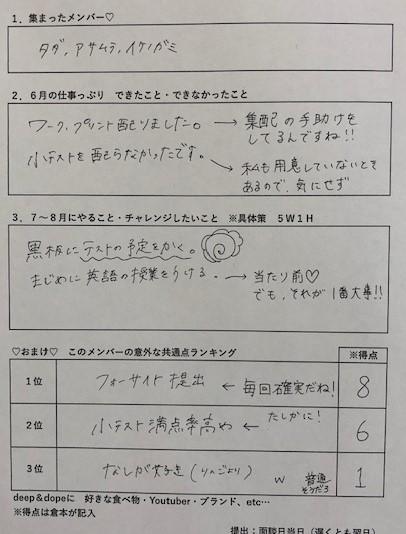 1. 集まったメンバー♡
タダ, アサムラ, イケノガミ
2. 6月の仕事っぷり できたこと・できなかったこと
ワーク, プリント配りました。 → 集配の手助けを
してるんですね!!
小テストを配らなかったです。 → 私も用意していないとき
あるので、気にせず
3. 7~8月にやること・チャレンジしたいこと ※具体策 5W1H
黒板にテストの予定をかく。
まじめに英語の授業をうける。 → 当たり前♡
でも、それが1番大事!!
♡おまけ♡ このメンバーの意外な共通点ランキング ※得点
1位 フォーサイト提出 ← 毎回確実だね! 8
2位 小テスト満点率高め ← たしかに! 6
3位 なしが好き (りんごより) w 普通そうだろ 1
deep&dopeに 好きな食べ物・Youtuber・ブランド、etc…
※得点は倉本が記入
提出:面談日当日(遅くとも翌日)